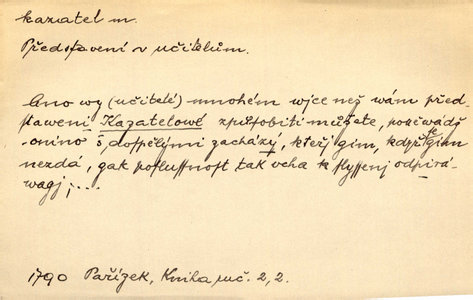 kazatel m.
Představení v učitelům.
Ano wy (učitelé) mnohém wjce než wám před
stawení Kazatelowé způsobiti můžete, poněwádž
onino s dospělými zacházý, kteřj gim, když se gim
nezdá, gak poslussnost tak ucha k slyssenj odpírá-
wagj; ...
1790 Pařízek, Kniha uč. 2, 2.